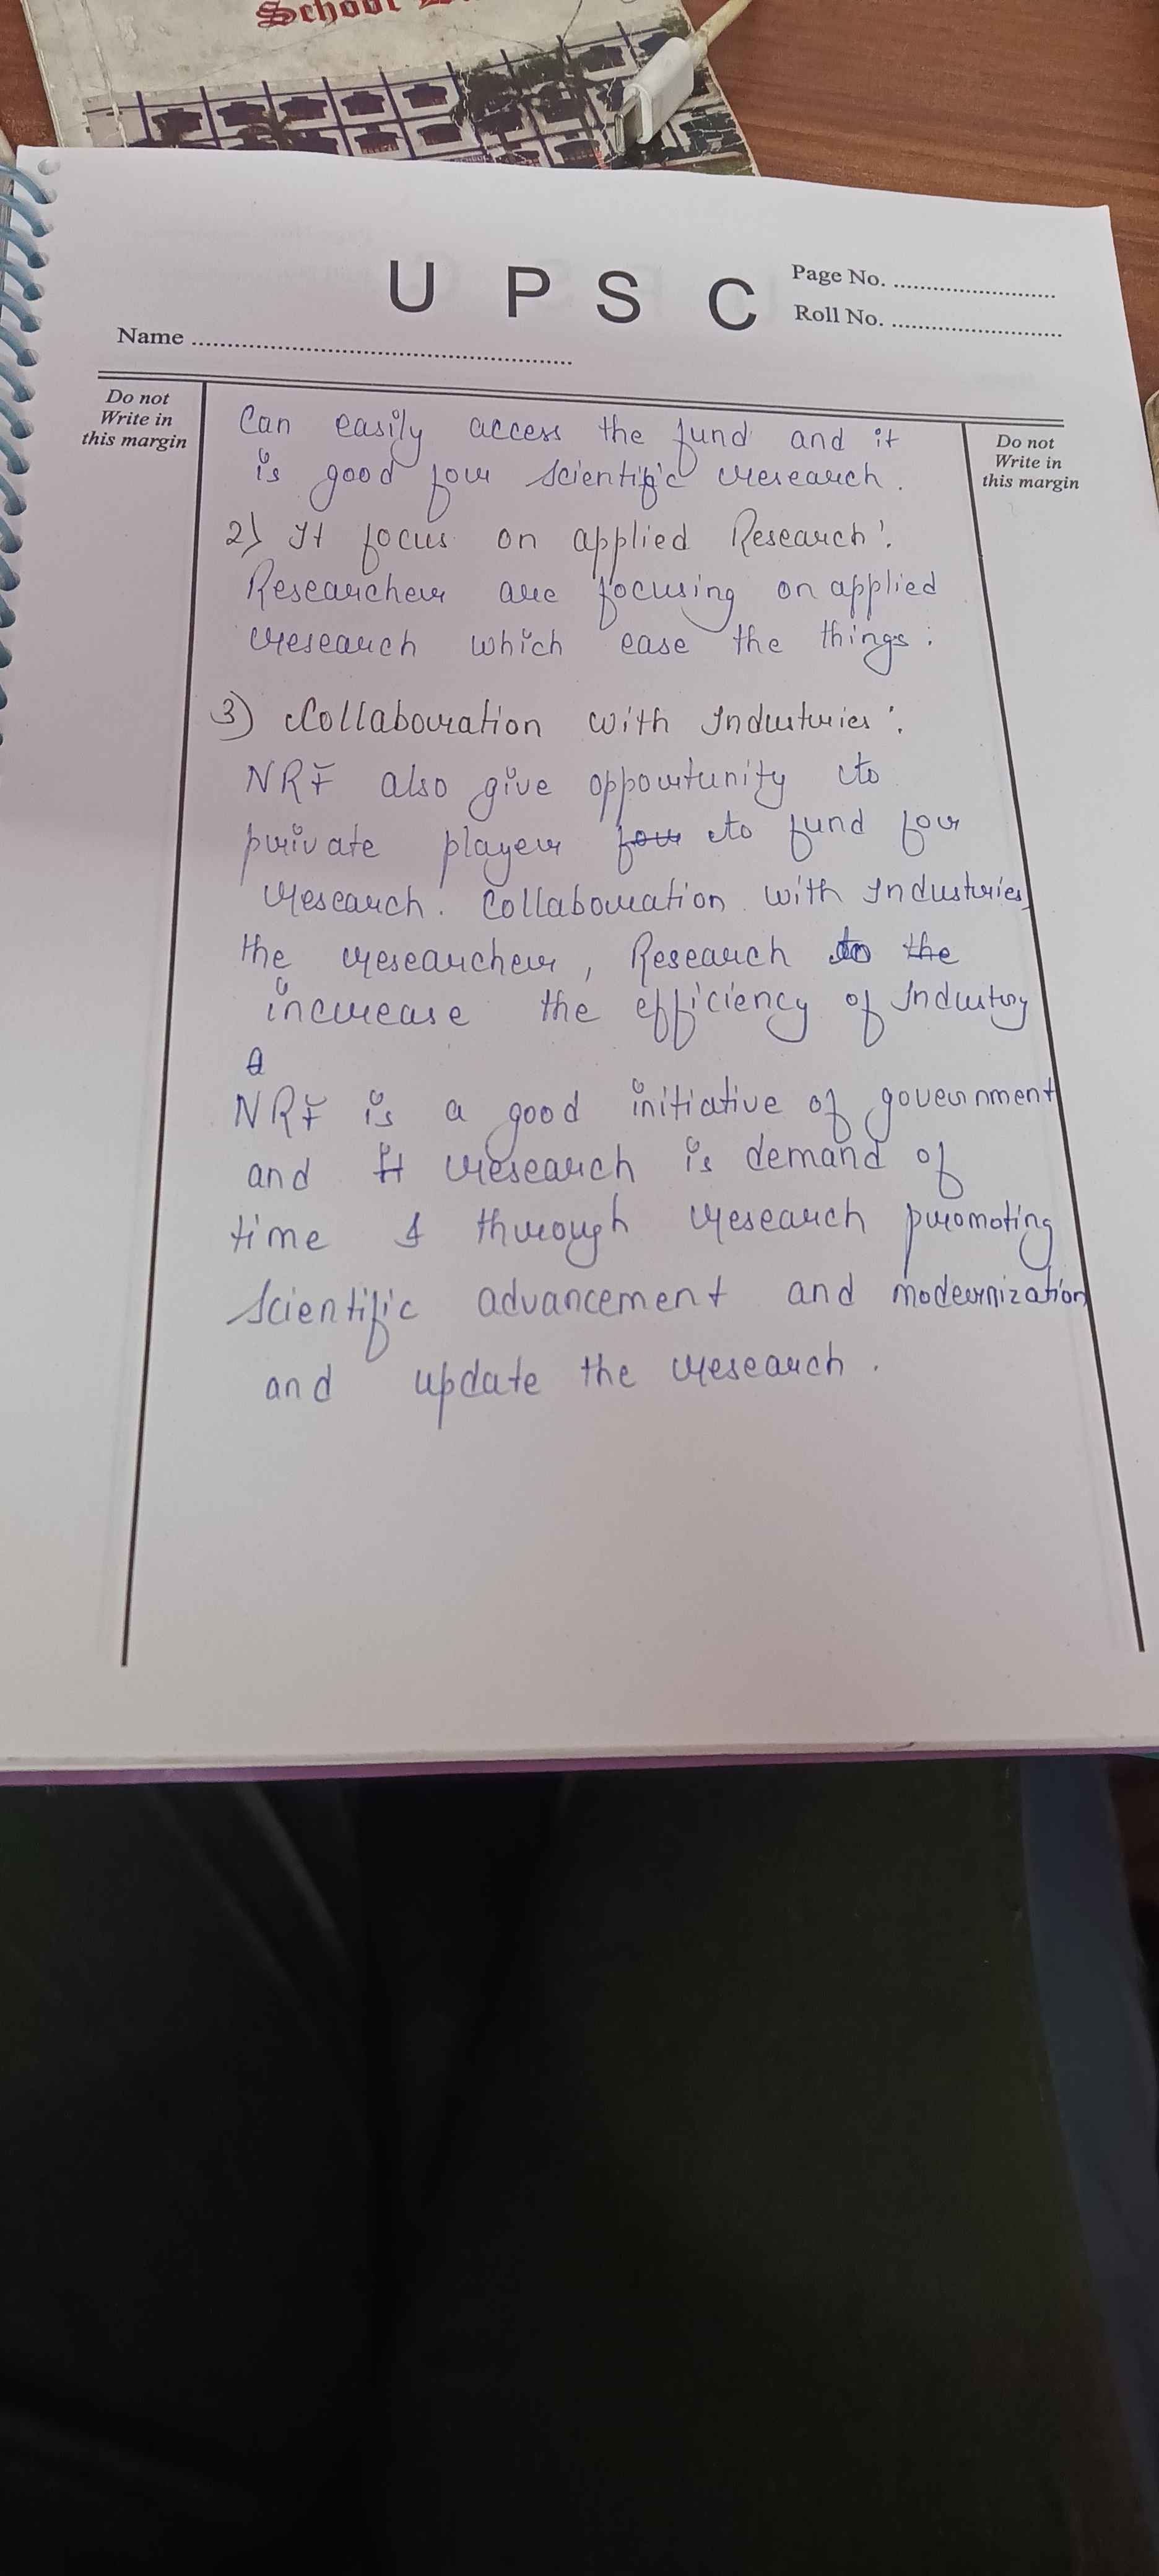 School
U P S C
Page No.
Roll No.
Name
Do not
Write in
this margin
Do not
Write in
this margin
Can easily access the fund and it
is good for scientific research.
2) It focus on applied Research:
Researcher are focusing on applied
research which ease the things.
3) Collaboration with Industries:
NRF also give opportunity to
private player for to fund for
research. Collaboration with Industries,
the researcher, Research to the
increase the efficiency of Industry
a
NRF is a good initiative of government
and It research is demand of
time & through research promoting
scientific advancement and modernization
and update the research.